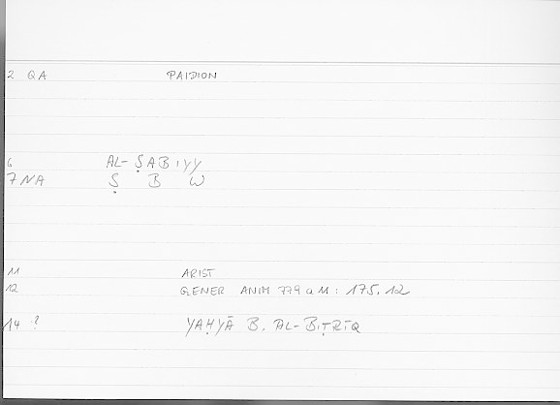 2 QA PAIDION
6 AL-ṢABIYY
7 NA Ṣ B W
11 ARIST
12 GENER ANIM 779 a 11 : 175,12
14 ? YAḤYĀ B. AL-BIṬRĪQ